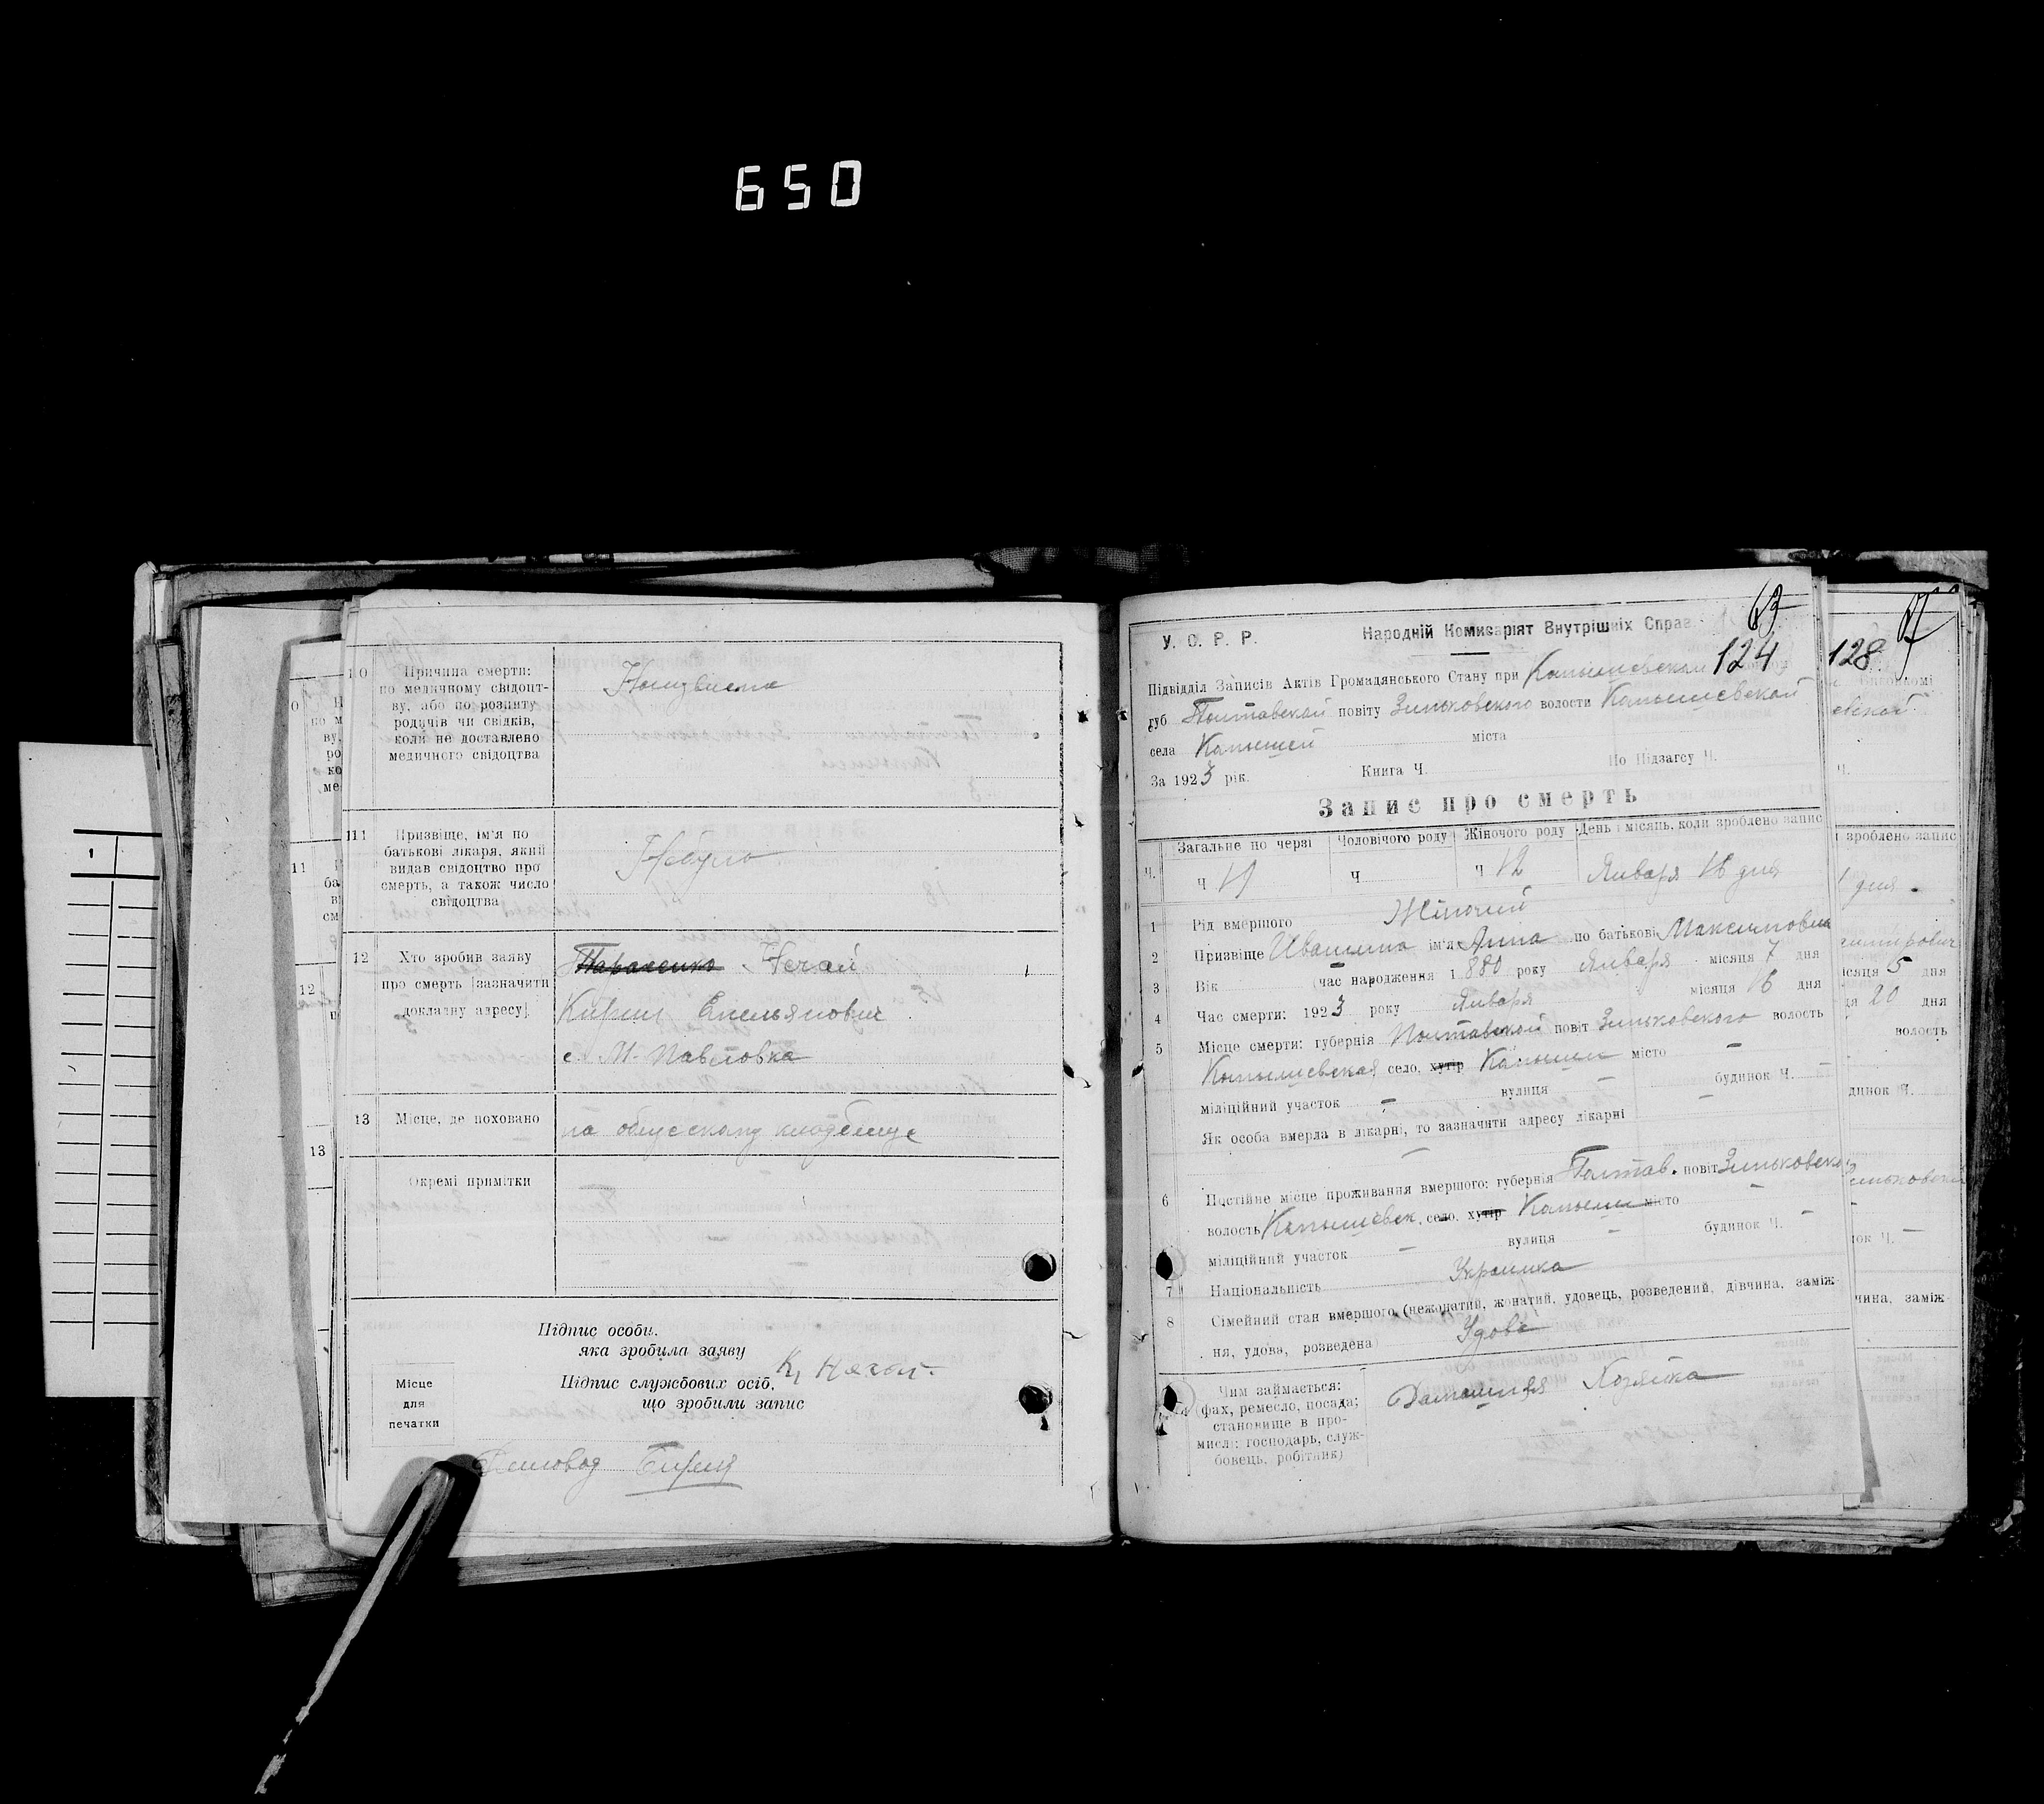 650
10 Причина смерти:
по медичному свідоцт-
ву, або по розпиту
родичів чи свідків,
коли не доставлено
медичного свідоцтва
11 Призвіще, ім'я по
батькові лікаря, який
видав свідоцтво про
смерть, а також число
свідоцтва
Небуло
12 Хто зробив заяву
про смерть (зазначити
докладну адресу).
Тараненко Нечай
Кирил Емельянович
с. М-Павловка
13 Місце, де поховано
на общескому кладбище
Окремі примітки
Підпис особи,
яка зробила заяву
К, Нечай.
Підпис службових осіб,
що зробили запис
Місце
для
печатки
Діловод
63
У. С. Р. Р. Народній Комісаріят Внутрішніх Справ
124
Підвідділ Записів Актів Громадянського Стану при
губ Полтавской повіту Зиньковского волости
села міста
За 1923 рік. Книга Ч. По Підзагсу Ч.
Запис про смерть
Ч. Загальне по черзі Чоловічого роду Жіночого роду День і місяць, коли зроблено запис
Ч 19 Ч Ч 12 Января 16 дня
1 Рід вмершого Жіночий
2 Призвіще Ивашина ім'я Анна по батькові Максимовна
3 Вік — (час народження 1880 року Января місяця 7 дня
4 Час смерти: 1923 року Января місяця 16 дня
5 Місце смерти: губернія Полтавской повіт Зиньковского волость
село, хутір місто —
міліційний участок — вулиця — будинок Ч. —
Як особа вмерла в лікарні, то зазначити адресу лікарні —
—
6 Постійне місце проживання вмершого: губернія Полтав. повіт Зиньковско
волость село, хутір місто —
міліційний участок — вулиця — будинок Ч. —
7 Національність Украинка
8 Сімейний стан вмершого (нежонатий, жонатий, удовець, розведений, дівчина, заміж-
ня, удова, розведена) Удова
Чим займається:
(фах, ремесло, посада;
становище в про-
мислі: господарь, служ-
бовець, робітник)
Домашняя Хозяйка
128
зроблено запис
дня.
місяця 5 дня
20 дня
волость
динок Ч.
ок Ч. —
чина, заміж-